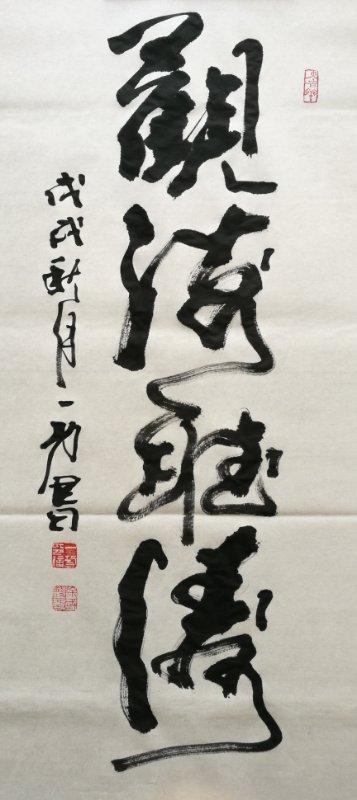 觀海聽濤
戊戌秋月一
書